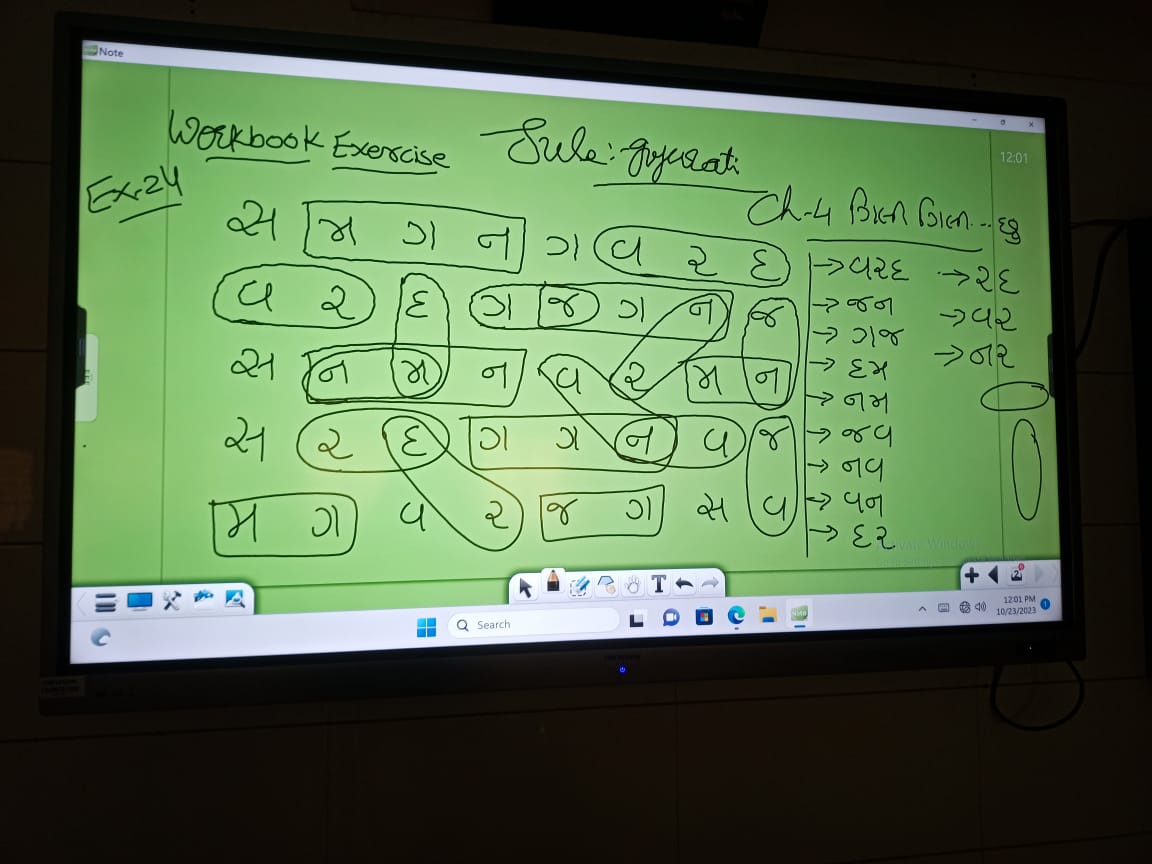 Note
Workbook Exercise Sub: Gujarati
12:01
Ex-24
Ch-4
સ મ ગ ન ગ વ ર દ
વ ર દ ગ જ ગ ન જ
સ ન મ ન વ ર મ ન
સ ર દ ગ ગ ન વ જ
મ ગ વ ર જ ગ સ વ
→ વરદ → રદ
→ જન → વર
→ ગજ → નર
→ દમ
→ નમ
→ જવ
→ નવ
→ વન
→ દર
T
2
Search
12:01 PM
10/23/2023